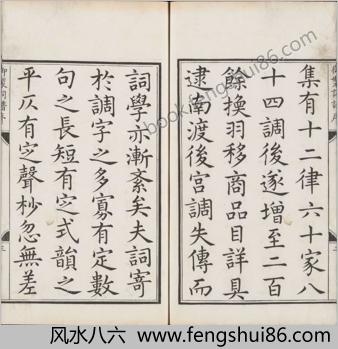 集有十二律六十家八
十四調後遂增至二百
餘換羽移商品目詳具
逮南渡後宮調失傳而
詞學亦漸紊矣夫詞寄
於調字之多寡有定數
句之長短有定式韻之
平仄有定聲杪忽無差
御製詞譜序
风水八六 www.fengshui86.com